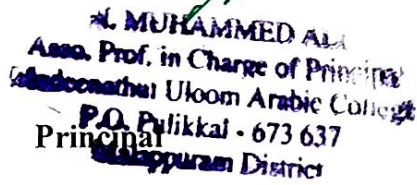 MUHAMMED ALI
Asso. Prof. in Charge of Principal
Uloom Arabic College
P.O. Pulikkal - 673 637
Principal
Malappuram District